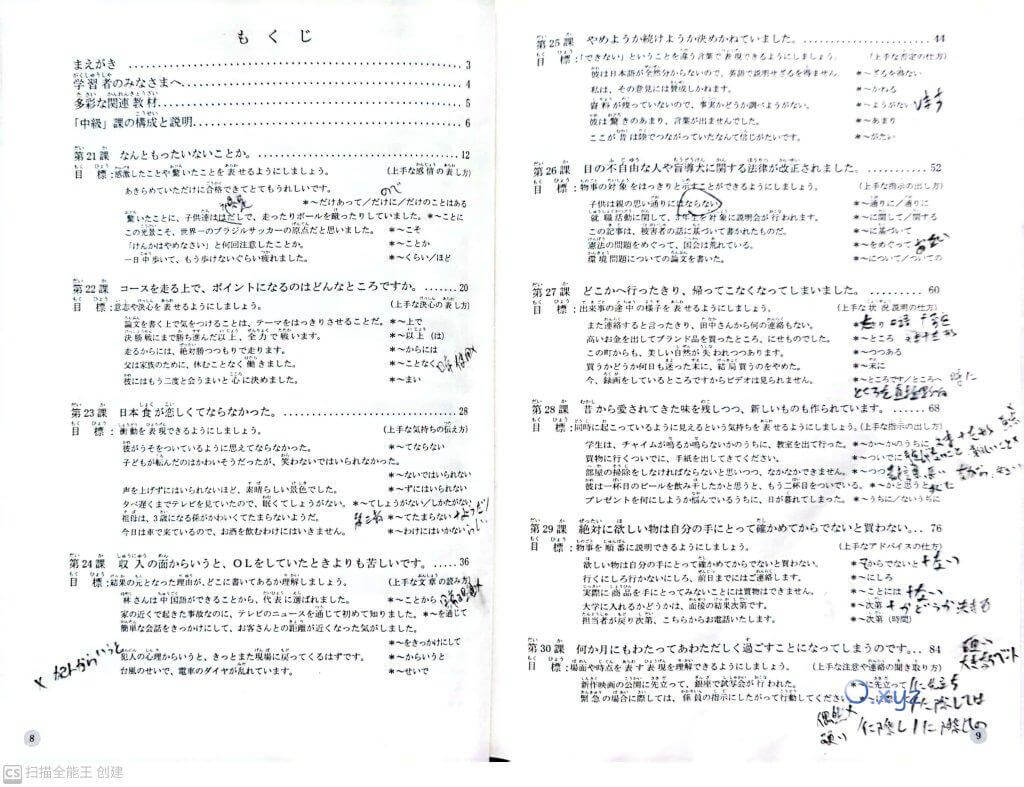 もくじ
まえがき ............ 3
学習者のみなさまへ ............ 4
多彩な関連教材 ............ 5
「中級」課の構成と説明 ............ 6
第21課 なんともったいないことか。 ............ 12
目標:感激したことや驚いたことを表せるようにしましょう。 (上手な感情の表し方)
あきらめていただけに合格できてとてもうれしいです。
*〜だけあって/だけに/だけのことはある
驚いたことに、子供達ははだしで、走ったりボールを蹴ったりしていました。 *〜ことに
この光景こそ、世界一のブラジルサッカーの原点だと思いました。 *〜こそ
「けんかはやめなさい」と何回注意したことか。 *〜ことか
一日中歩いて、もう歩けないぐらい疲れました。 *〜くらい/ほど
第22課 コースを走る上で、ポイントになるのはどんなところですか。 ............ 20
目標:意志や決心を表せるようにしましょう。 (上手な決心の表し方)
論文を書く上で気をつけることは、テーマをはっきりさせることだ。 *〜上で
決勝戦にまで勝ち進んだ以上、全力で戦います。 *〜以上(は)
走るからには、絶対勝つつもりで走ります。 *〜からには
父は家族のために、休むことなく働きました。 *〜ことなく
彼にはもう二度と会うまいと心に決めました。 *〜まい
第23課 日本食が恋しくてならなかった。 ............ 28
目標:衝動を表現できるようにしましょう。 (上手な気持ちの伝え方)
彼がうそをついているように思えてならなかった。 *〜てならない
子どもが転んだのはかわいそうだったが、笑わないではいられなかった。
*〜ないではいられない
声を上げずにはいられないほど、素晴らしい景色でした。 *〜ずにはいられない
夕べ遅くまでテレビを見ていたので、眠くてしょうがない。 *〜てしょうがない/しかたがない
祖母は、3歳になる孫がかわいくてたまらないようだ。 *〜てたまらない
今日は車で来ているので、お酒を飲むわけにはいきません。 *〜わけにはいかない
第24課 収入の面からいうと、OLをしていたときよりも苦しいです。 ............ 36
目標:結果の元となった理由が、どこに書いてあるか理解しましょう。 (上手な文章の読み方)
林さんは中国語ができることから、代表に選ばれました。 *〜ことから
家の近くで起きた事故なのに、テレビのニュースを通じて初めて知りました。 *〜を通じて
簡単な会話をきっかけにして、お客さんとの距離が近くなった気がしました。
*〜をきっかけにして
犯人の心理からいうと、きっとまた現場に戻ってくるはずです。 *〜からいうと
台風のせいで、電車のダイヤが乱れています。 *〜せいで
8
第25課 やめようか続けようか決めかねていました。 ............ 44
目標:「できない」ということを違う言葉で表現できるようにしましょう。 (上手な否定の仕方)
彼は日本語が全然分からないので、英語で説明せざるを得ません *〜ざるを得ない
私は、その意見には賛成しかねます。 *〜かねる
資料が残っていないので、事実かどうか調べようがない。 *〜ようがない
彼は驚きのあまり、言葉が出ませんでした。 *〜あまり
ここが昔は陸でつながっていたなんて信じがたいです。 *〜がたい
第26課 目の不自由な人や盲導犬に関する法律が改正されました。 ............ 52
目標:物事の対象をはっきりと示すことができるようにしましょう。 (上手な指示の出し方)
子供は親の思い通りにはならない *〜通りに/通りに
就職活動に関して、3年生を対象に説明会が行われます。 *〜に関して/関する
この記事は、被害者の話に基づいて書かれたものだ。 *〜に基づいて
憲法の問題をめぐって、国会は荒れている。 *〜をめぐって
環境問題についての論文を書いた。 *〜について/についての
第27課 どこかへ行ったきり、帰ってこなくなってしまいました。 ............ 60
目標:出来事の途中の様子を表せるようにしましょう。 (上手な状況説明の仕方)
また連絡すると言ったきり、田中さんから何の連絡もない。
高いお金を出してブランド品を買ったところ、にせものでした。 *〜ところ
この町からも、美しい自然が失われつつあります。 *〜つつある
買うかどうか何日も迷った末に、結局買うのをやめた。 *〜末に
今、録画をしているところですからビデオは見られません。 *〜ところです/ところへ
第28課 昔から愛されてきた味を残しつつ、新しいものも作られています。 ...... 68
目標:同時に起こっているように見えるという気持ちを表せるようにしましょう。(上手な指示の出し方)
学生は、チャイムが鳴るか鳴らないかのうちに、教室を出て行った。 *〜か〜かのうちに
買物に行くついでに、手紙を出してきてください。 *〜ついでに
部屋の掃除をしなければならないと思いつつ、なかなかできません。 *〜つつ
彼は一杯目のビールを飲み干したかと思うと、もう二杯目をついでいる。 *〜かと思うと
プレゼントを何にしようか悩んでいるうちに、日が暮れてしまった。 *〜うちに/ないうちに
第29課 絶対に欲しい物は自分の手にとって確かめてからでないと買わない。 ... 76
目標:物事を順番に説明できるようにしましょう。 (上手なアドバイスの仕方)
欲しい物は自分の手にとって確かめてからでないと買わない。 *〜からでないと
行くにしろ行かないにしろ、前日までにはご連絡します。 *〜にしろ
実際に商品を手にとってみないことには買物はできません。 *〜ことには
大学に入れるかどうかは、面接の結果次第です。 *〜次第
担当者が戻り次第、こちらからお電話いたします。 *〜次第(時間)
第30課 何か月にもわたってあわただしく過ごすことになってしまうのです。 .. 84
目標:場面や時点を表す表現を理解できるようにしましょう。 (上手な注意や連絡の聞き取り方)
新作映画の公開に先立って、銀座で試写会が行われた。 に先立って
緊急の場合に際しては、係員の指示にしたがって行動してください
xyz
9
CS 扫描全能王 创建